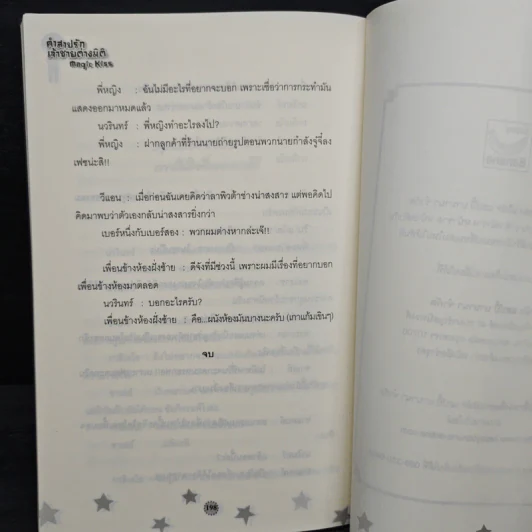 คำสาปรัก
เจ้าชายต่างมิติ
Magic Kiss
พี่หญิง : ฉันไม่มีอะไรที่อยากจะบอก เพราะเชื่อว่าการกระทำมัน
แสดงออกมาหมดแล้ว
นวรินทร์ : พี่หญิงทำอะไรลงไป?
พี่หญิง : ฝากลูกค้าที่ร้านนายถ่ายรูปตอนพวกนายกำลังจู๋จี๋ลง
เฟซน่ะสิ!!
วีแอน : เมื่อก่อนฉันเคยคิดว่าลาพิวต้าช่างน่าสงสาร แต่พอคิดไป
คิดมาพบว่าตัวเองกลับน่าสงสารยิ่งกว่า
เบอร์หนึ่งกับเบอร์สอง : พวกผมต่างหากล่ะเจ๊!!
เพื่อนข้างห้องฝั่งซ้าย : ดีจังที่มีช่วงนี้ เพราะผมมีเรื่องที่อยากบอก
เพื่อนข้างห้องมาตลอด
นวรินทร์ : บอกอะไรครับ?
เพื่อนข้างห้องฝั่งซ้าย : คือ...ผนังห้องมันบางนะครับ (เกาแก้มเขินๆ)
จบ
198